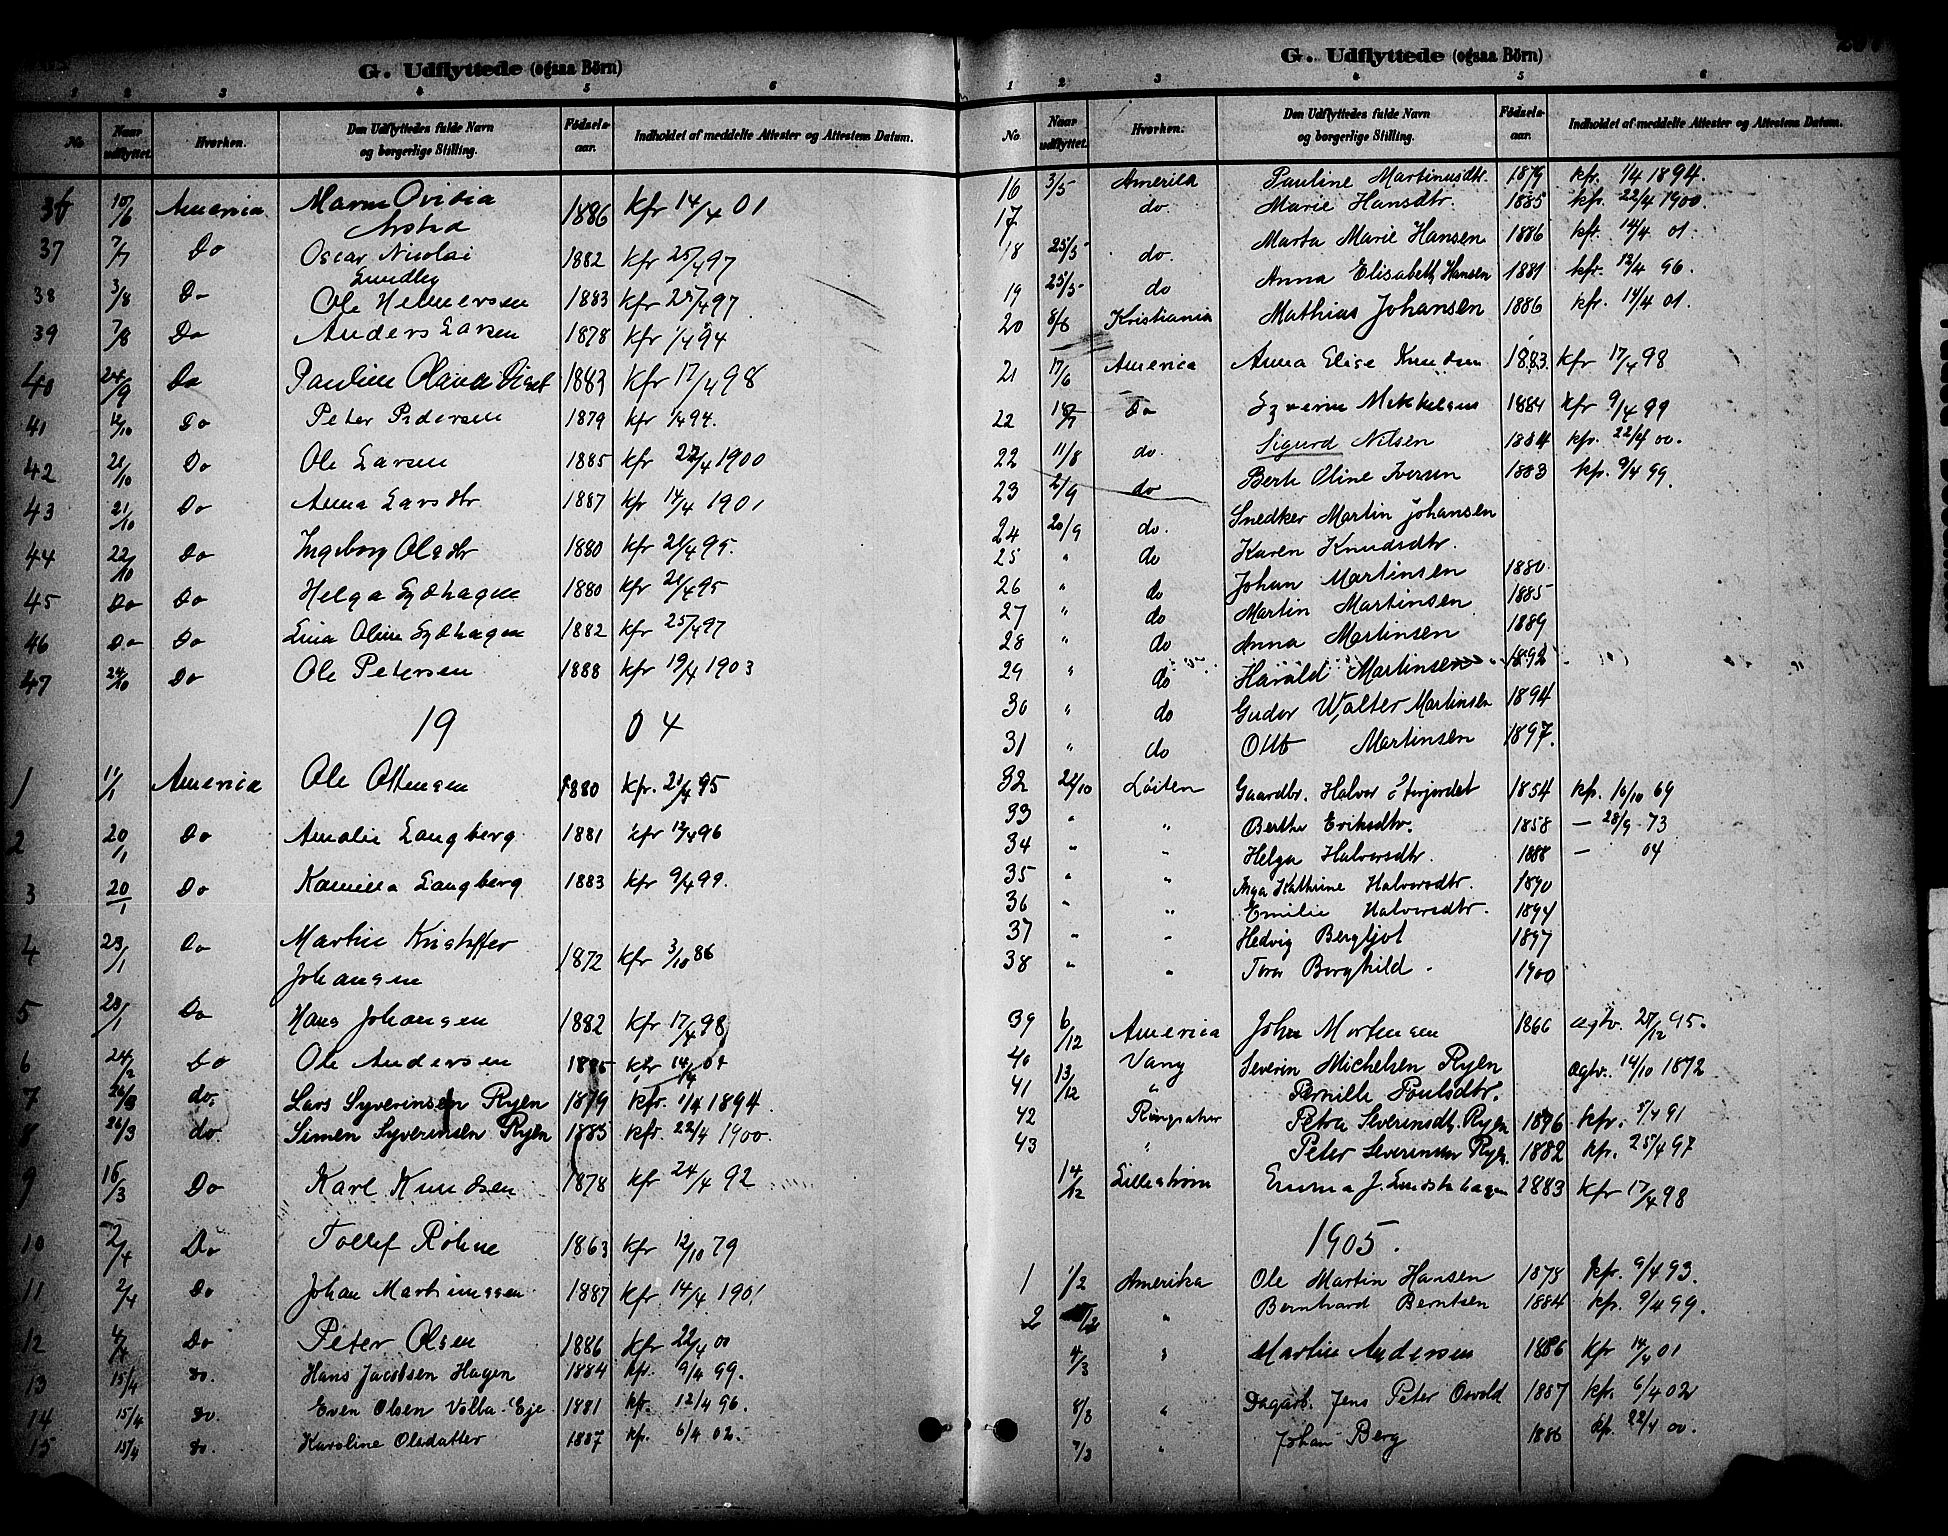 G. Udflyttede (ogsaa Börn)
1 2 3 4 5 6
No Naar udflyttet. Hvorhen. Den Udflyttedes fulde Navn og borgerlige Stilling. Födsels-aar. Indholdet af meddelte Attester og Attestens Datum.
36 10/6 America Maren Ovidia 1886 kfr 14/4 01
37 7/7 Do Oscar Nicolai 1882 kfr 25/4 97
Lundby
38 3/8 Do Ole Helmersen 1883 kfr 25/4 97
39 7/8 Do Anders Larsen 1878 kfr 1/4 94
40 24/9 Do Pauline Olava 1883 kfr 17/4 98
41 12/10 Do Peter Pedersen 1879 kfr 1/4 94.
42 21/10 Do Ole Larsen 1885 kfr 22/4 1900
43 21/10 Do Anna Larsdtr 1887 kfr 14/4 1901
44 22/10 Do Ingeborg Olsdtr 1880 kfr 21/4 95.
45 Do Do Helga Sydhagen 1880 kfr 21/4 95
46 Do Do Lina Oline Sydhagen 1882 kfr 25/4 97
47 24/10 Do Ole Petersen 1888 kfr 19/4 1903
1904
1 11/1 America Ole Ottensen 1880 kfr. 21/4 95
2 20/1 Do Amalie Langberg 1881 kfr 12/4 96
3 20/1 Do Kamilla Langberg 1883 kfr 9/4 99.
4 23/1 Do Martin Kristoffer
Johansen 1872 kfr 3/10 86
5 28/1 Do Hans Johansen 1882 kfr 17/4 98
6 24/2 Do Ole Andersen 1885 kfr 14/4
7 26/3 do. Lars Syverinsen Ryen 1879 kfr. 1/4 1894.
8 26/3 do. Simen Syverinsen Ryen 1885 kfr. 22/4 1900.
9 16/3 Do Karl Knudsen 1878 kfr 24/4 92
10 2/4 Do Tollef Röhne 1863 kfr 12/10 79
11 2/4 Do Johan Martinussen 1887 kfr 14/4 1901
12 4/4 Do Peter Olsen 1886 kfr 22/4 00
13 15/4 do. Hans Jacobsen Hagen 1884 kfr. 9/4 99.
14 15/4 do. Even Olsen Volla-Eje 1881 kfr. 12/4 96.
15 15/4 do. Karoline Olsdatter 1887 kfr. 6/4 02.
G. Udflyttede (ogsaa Börn)
1 2 3 4 5 6
No Naar udflyttet. Hvorhen. Den Udflyttedes fulde Navn og borgerlige Stilling. Födsels-aar. Indholdet af meddelte Attester og Attestens Datum.
16 3/5 Amerika Pauline Martinusdtr. 1879 kfr. 1/4 1894.
17 do. Marie Hansdtr. 1885 kfr. 22/4 1900.
18 25/5 do. Marta Marie Hansen 1886 kfr. 14/4 01.
19 25/5 do Anna Elisabeth Hansen 1881 kfr. 12/4 96.
20 8/6 Kristiania Mathias Johansen 1886 kfr. 14/4 01.
21 17/6 America Anna Elise Knudsen 1883. kfr 17/4 98
22 Do Syverin Mikkelsen 1884 kfr 9/4 99
22 11/8 do. Sigurd Nilsen 1884 kfr. 22/4 00.
23 2/9 do Berte Oline Iversen 1883 kfr. 9/4 99.
24 20/9 do. Snedker Martin Johansen
25 " do Karen Knudsdtr.
26 " do Johan Martinsen 1880.
27 " do Martin Martinsen 1885
28 " do Anna Martinsen 1889
29 " do Harald Martinsen 1892
30 " do Gudor Walter Martinsen 1894
31 " do Otto Martinsen 1897.
32 22/10 Löiten Gaardbr. Halvor Sterjordet 1854 kfr. 10/10 69
33 " " Berthe Eriksdtr. 1858 — 28/9 73
34 " " Helga Halvorsdtr. 1888 — 04
35 " " Inga Kathrine Halvorsdtr. 1890
36 " " Emilie Halvorsdtr. 1894
37 " " Hedvig Bergljot 1897
38 " " Tora Borghild. 1900
39 6/12 America John Mortensen 1866 agtv. 27/12 95.
40 13/12 Vang Severin Michelsen Ryen agtv. 14/10 1872.
41 " Pernille Poulsdtr.
42 Ringsaker Petra Severinsdt. Ryen 1876 kfr. 5/4 91
43 " Peter Severinsen Ryen. 1882 kfr. 25/4 97
14/12 Lilleström Emma J. 1883 kfr 17/4 98
1905.
1 1/2 Amerika Ole Martin Hansen 1878 kfr. 9/4 93.
2 " Bernhard Berntsen 1884 kfr. 9/4 99.
4/3 " Martin Andersen 1886 kfr 14/4 01
8/3 " Dagarb. Jens Peter Osvold 1887 kfr. 6/4 02
7/3 " Johan Berg 1886 kfr. 22/4 00.